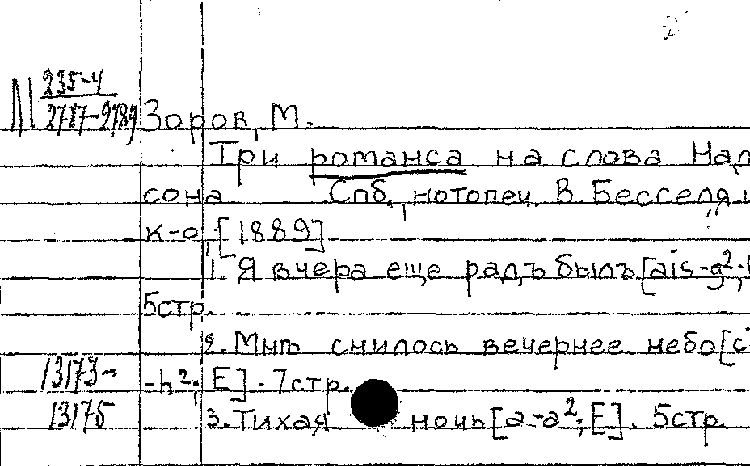 М 235-4
2787-2789 Зоров, М.
Три романса на слова Над
сона Спб., нотопеч. В. Бесселя и
к-о, [1889]
1. Я вчера еще радъ былъ [ais-g²;
5стр.
2. Мнѣ снилось вечернее небо [c
13173- -h²; E]. 7стр.
13175 3. Тихая ночь [a-a²; E]. 5стр.